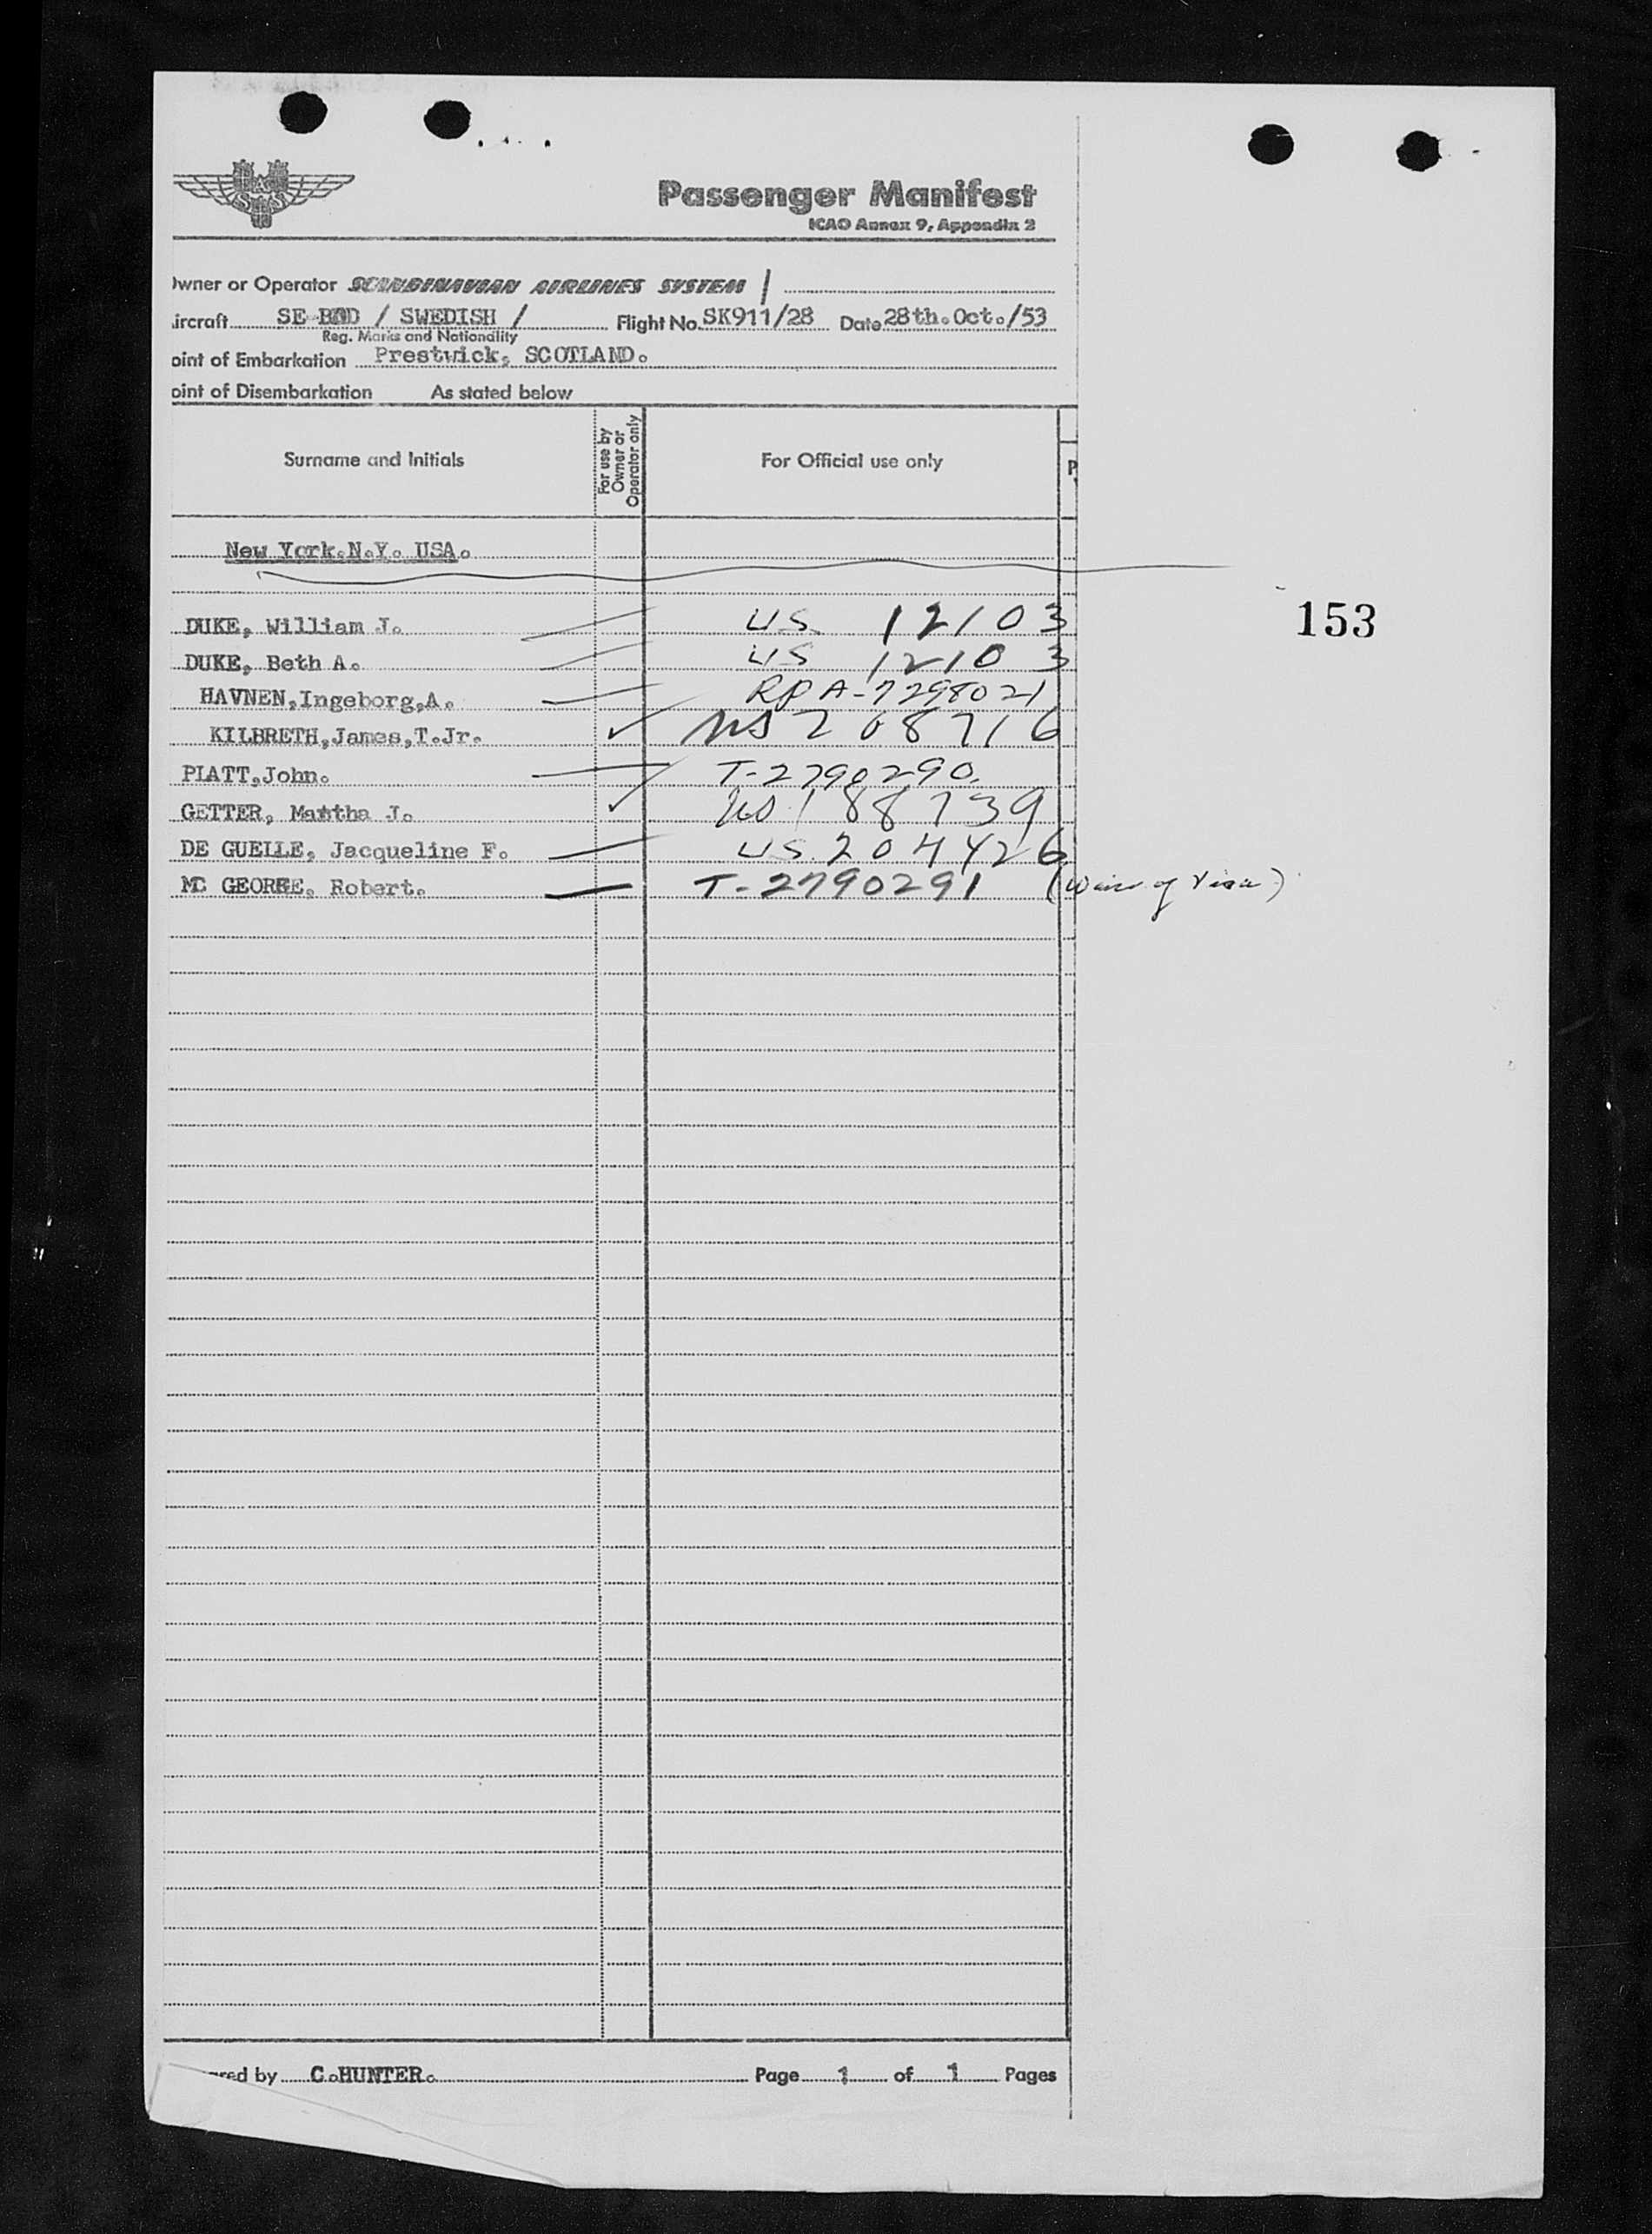 SAS
Passenger Manifest
ICAO Annex 9, Appendix 2
Owner or Operator SCANDINAVIAN AIRLINES SYSTEM /
ircraft SE / SWEDISH / Flight No. SK911/28 Date 28th.Oct./53
Reg. Marks and Nationality
oint of Embarkation Prestwick, SCOTLAND.
oint of Disembarkation As stated below
Surname and Initials For use by Owner or Operator only For Official use only P
New York.N.Y. USA.
153
DUKE, William J. US 12103
DUKE, Beth A. US 12103
HAVNEN,Ingeborg,A. RP A-7298021
KILBRETH,James,T.Jr. ✓ US 268716
PLATT,John. T-2790290.
GETTER, Martha J. ✓ US 188739
DE GUELLE, Jacqueline F. US 204426
MC GEORGE, Robert. T-2790291 (Waiv. of Visa)
red by C.HUNTER. Page 1 of 1 Pages